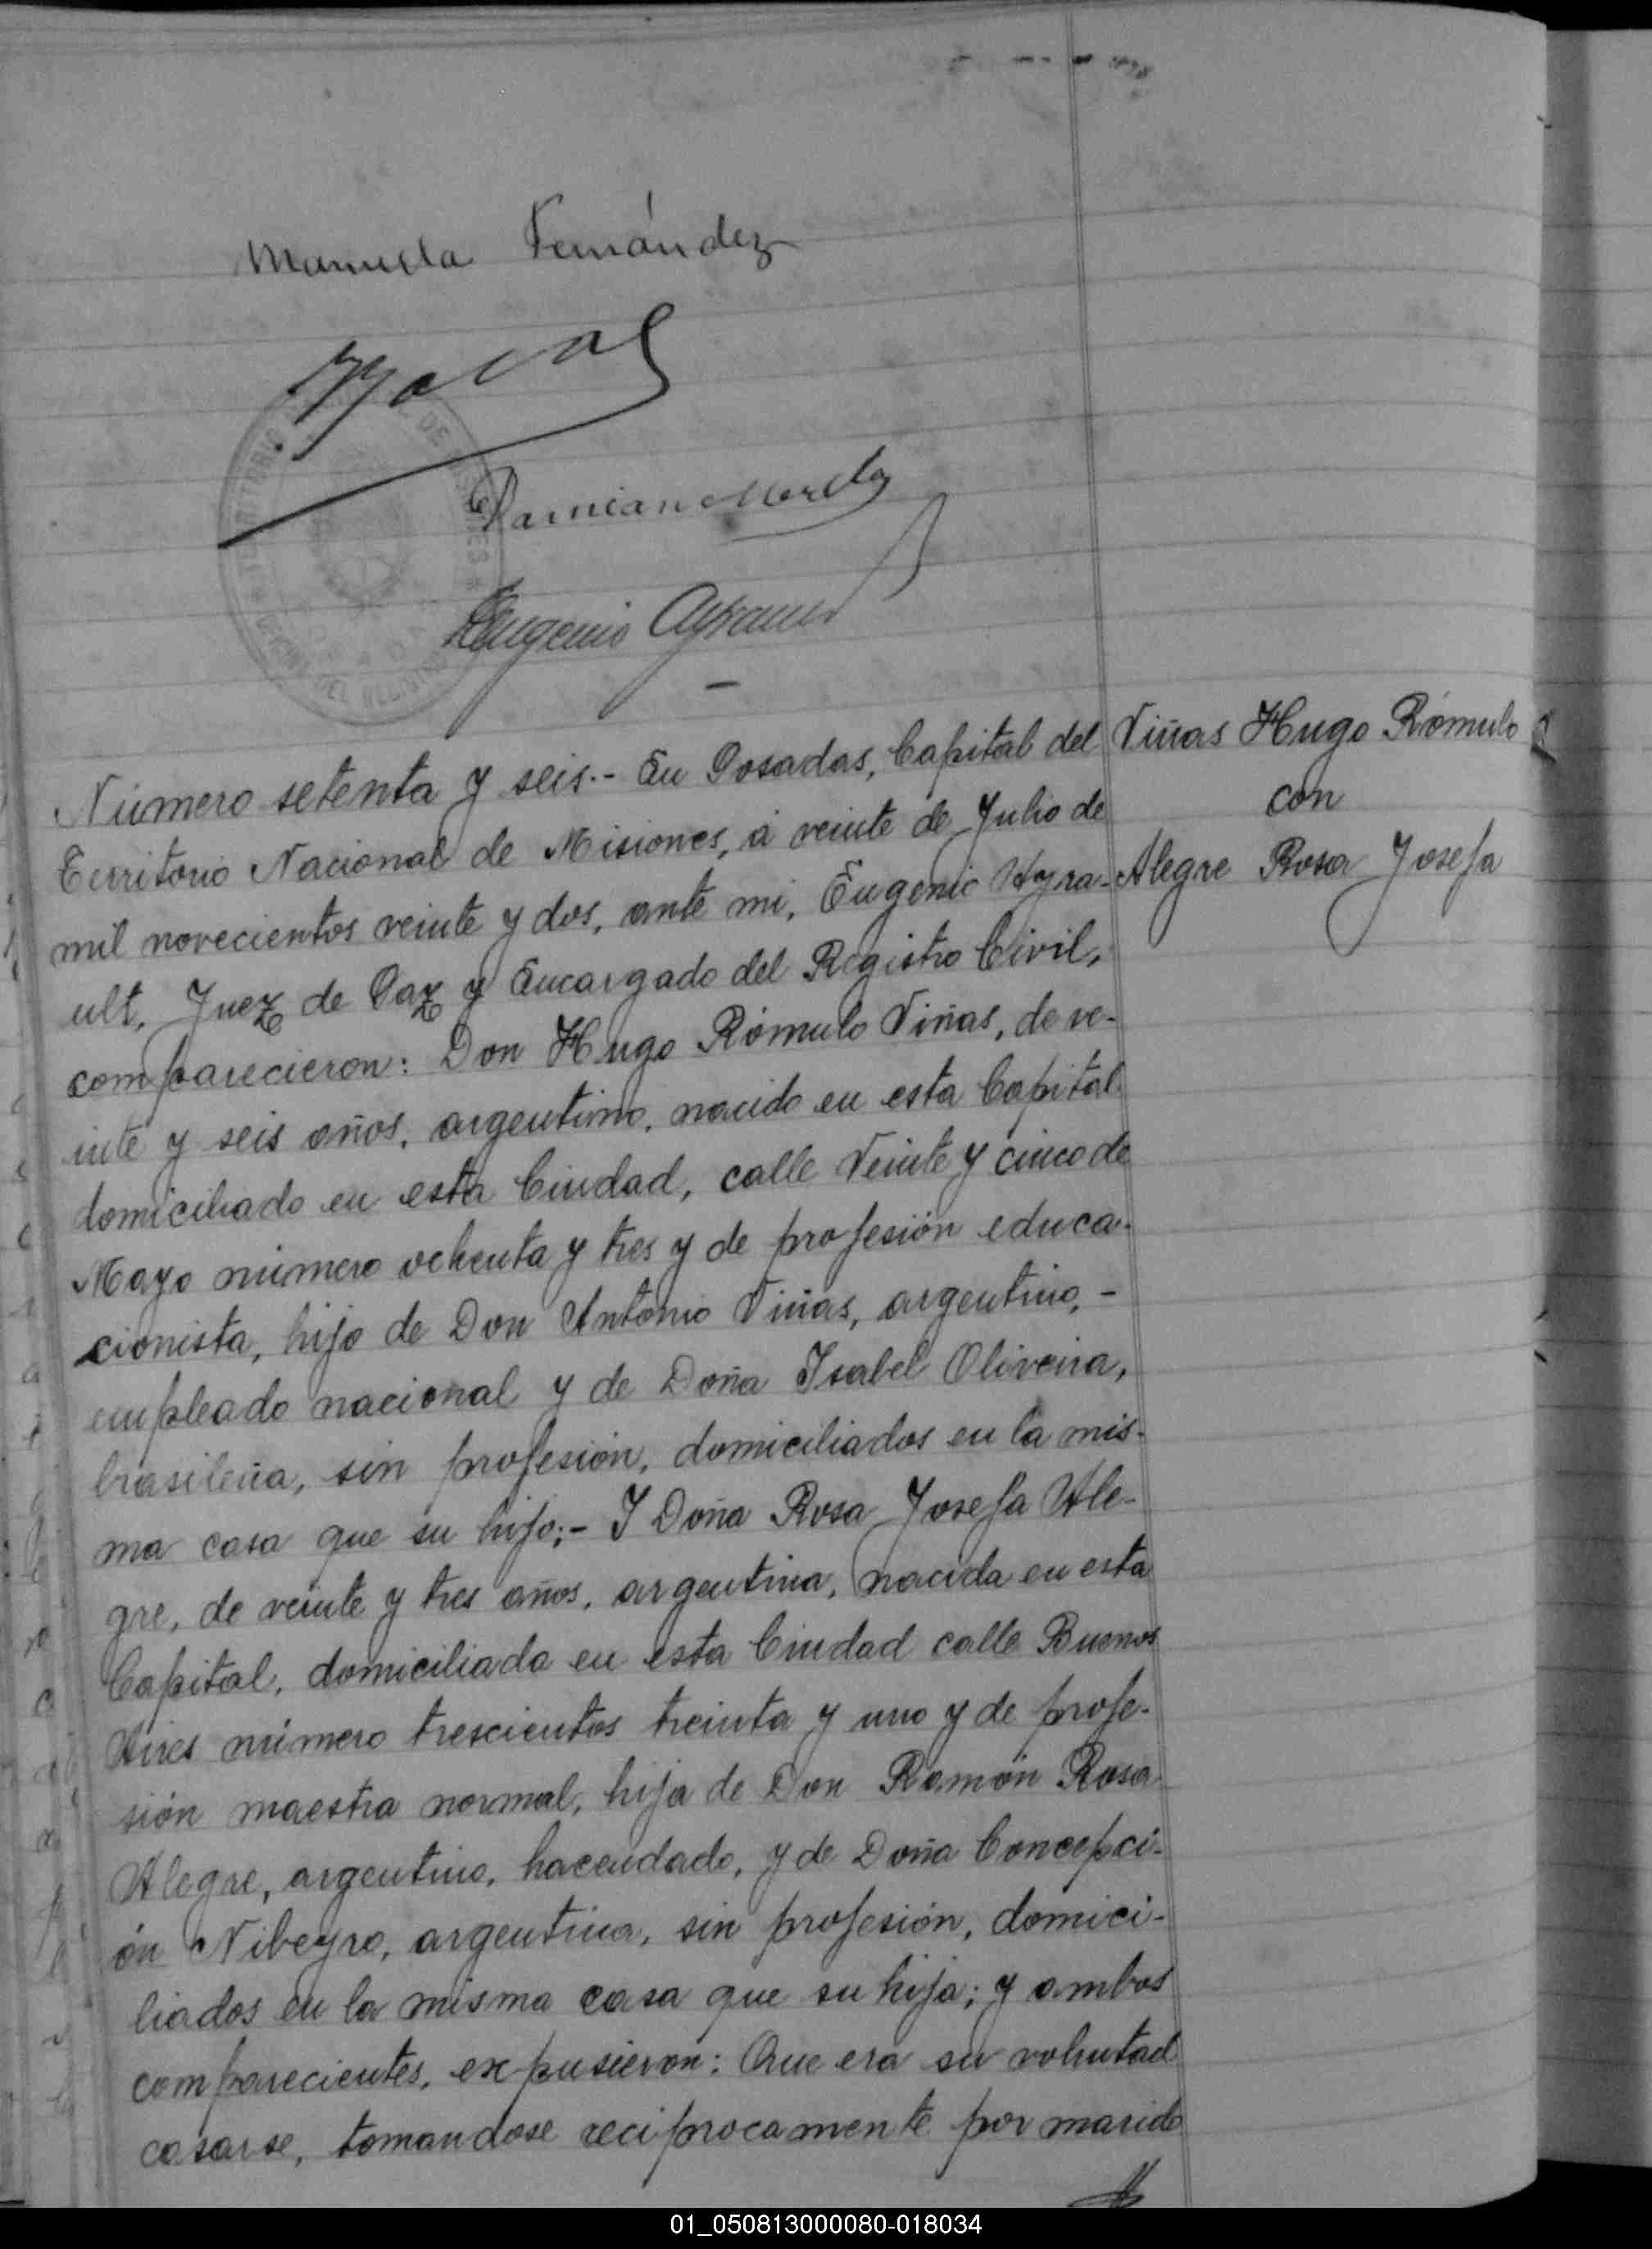 Manuela Fernández
Damian Morela
Eugenio Ayrault
Número setenta y seis.- En Posadas, Capital del
Territorio Nacional de Misiones, á veinte de Julio de
mil novecientos veinte y dos, ante mi, Eugenio Ayra-
ult, Juez de Paz y Encargado del Registro Civil,
comparecieron: Don Hugo Rómulo Viñas, de ve-
inte y seis años, argentino, nacido en esta Capital
domiciliado en esta Ciudad, calle Veinte y cinco de
Mayo número ochenta y tres y de profesión educa-
cionista, hijo de Don Antonio Viñas, argentino,-
empleado nacional y de Doña Isabel Oliveira,
brasileña, sin profesión, domiciliados en la mis-
ma casa que su hijo;- Y Doña Rosa Josefa Ale-
gre, de veinte y tres años, argentina, nacida en esta
Capital, domiciliada en esta Ciudad calle Buenos
Aires número trescientos treinta y uno y de profe-
sión maestra normal, hija de Don Ramón Rosa
Alegre, argentino, hacendado, y de Doña Concepci-
ón Nibeyro, argentina, sin profesión, domici-
liados en la misma casa que su hija; y ambos
comparecientes, expusieron: Que era su voluntad
casarse, tomandose reciprocamente por marido
Viñas Hugo Rómulo
con
Alegre Rosa Josefa
01_050813000080-018034